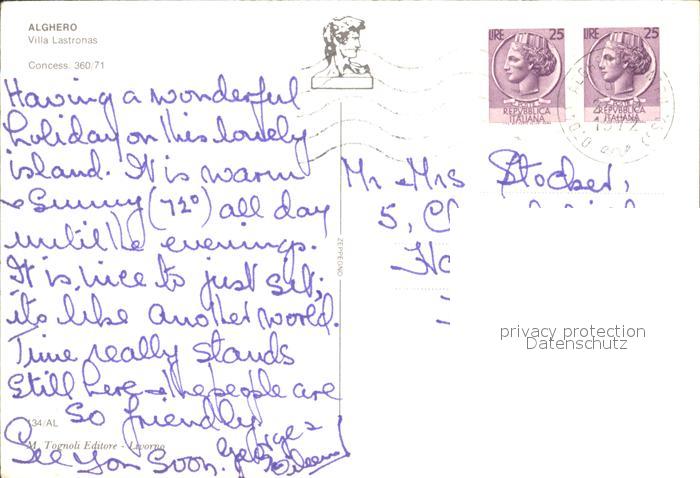 ALGHERO
Villa Lastronas
Concess. 360/71
Having a wonderful
holiday on this lovely
island. It is warm
& Sunny (72°) all day
until the evenings.
It is nice to just sit;
its like another world.
Time really stands
still here & the people are
so friendly
See you soon. George &
Eileen
134/AL
M. Tognoli Editore - Livorno
ZEPPEGNO
LIRE 25
REPUBBLICA
ITALIANA
LIRE 25
REPUBBLICA
ITALIANA
1972
Mr & Mrs Stocker,
5, C
Ho
privacy protection
Datenschutz